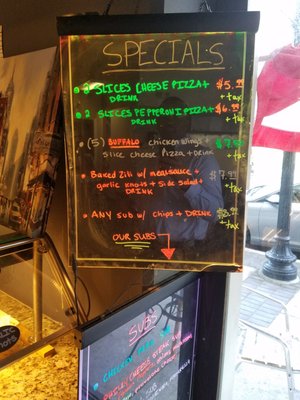 SPECIALS
2 SLICES CHEESE PIZZA + $5.99
DRINK + tax
2 SLICES PEPPERONI PIZZA + $6.99
DRINK + tax
(5) BUFFALO chicken wings +
slice cheese Pizza + drink + tax
Baked Ziti w/ meatsauce + $7.99
garlic knots + Side Salad + + tax
DRINK
ANY sub w/ chips + DRINK $8.99
+ tax
OUR SUBS
SUBS
CHICKEN
PHILLY CHEESE STEAK